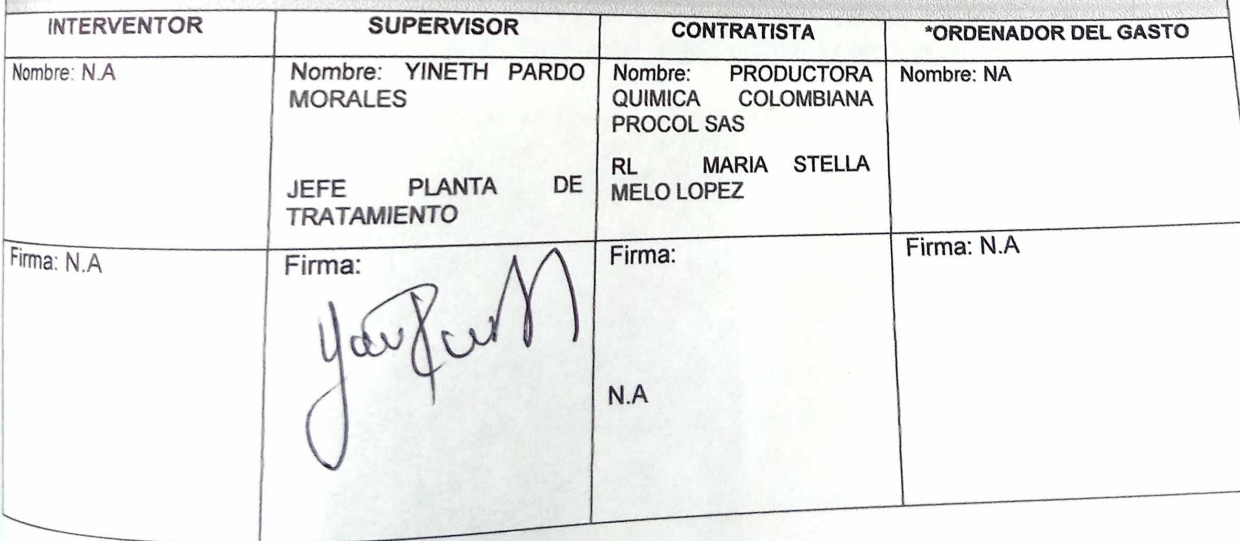 INTERVENTOR
SUPERVISOR
CONTRATISTA
*ORDENADOR DEL GASTO
Nombre: N.A
Nombre: YINETH PARDO
MORALES
JEFE PLANTA DE
TRATAMIENTO
Nombre: PRODUCTORA
QUIMICA COLOMBIANA
PROCOL SAS
RL MARIA STELLA
MELO LOPEZ
Nombre: NA
Firma: N.A
Firma:
Firma:
N.A
Firma: N.A